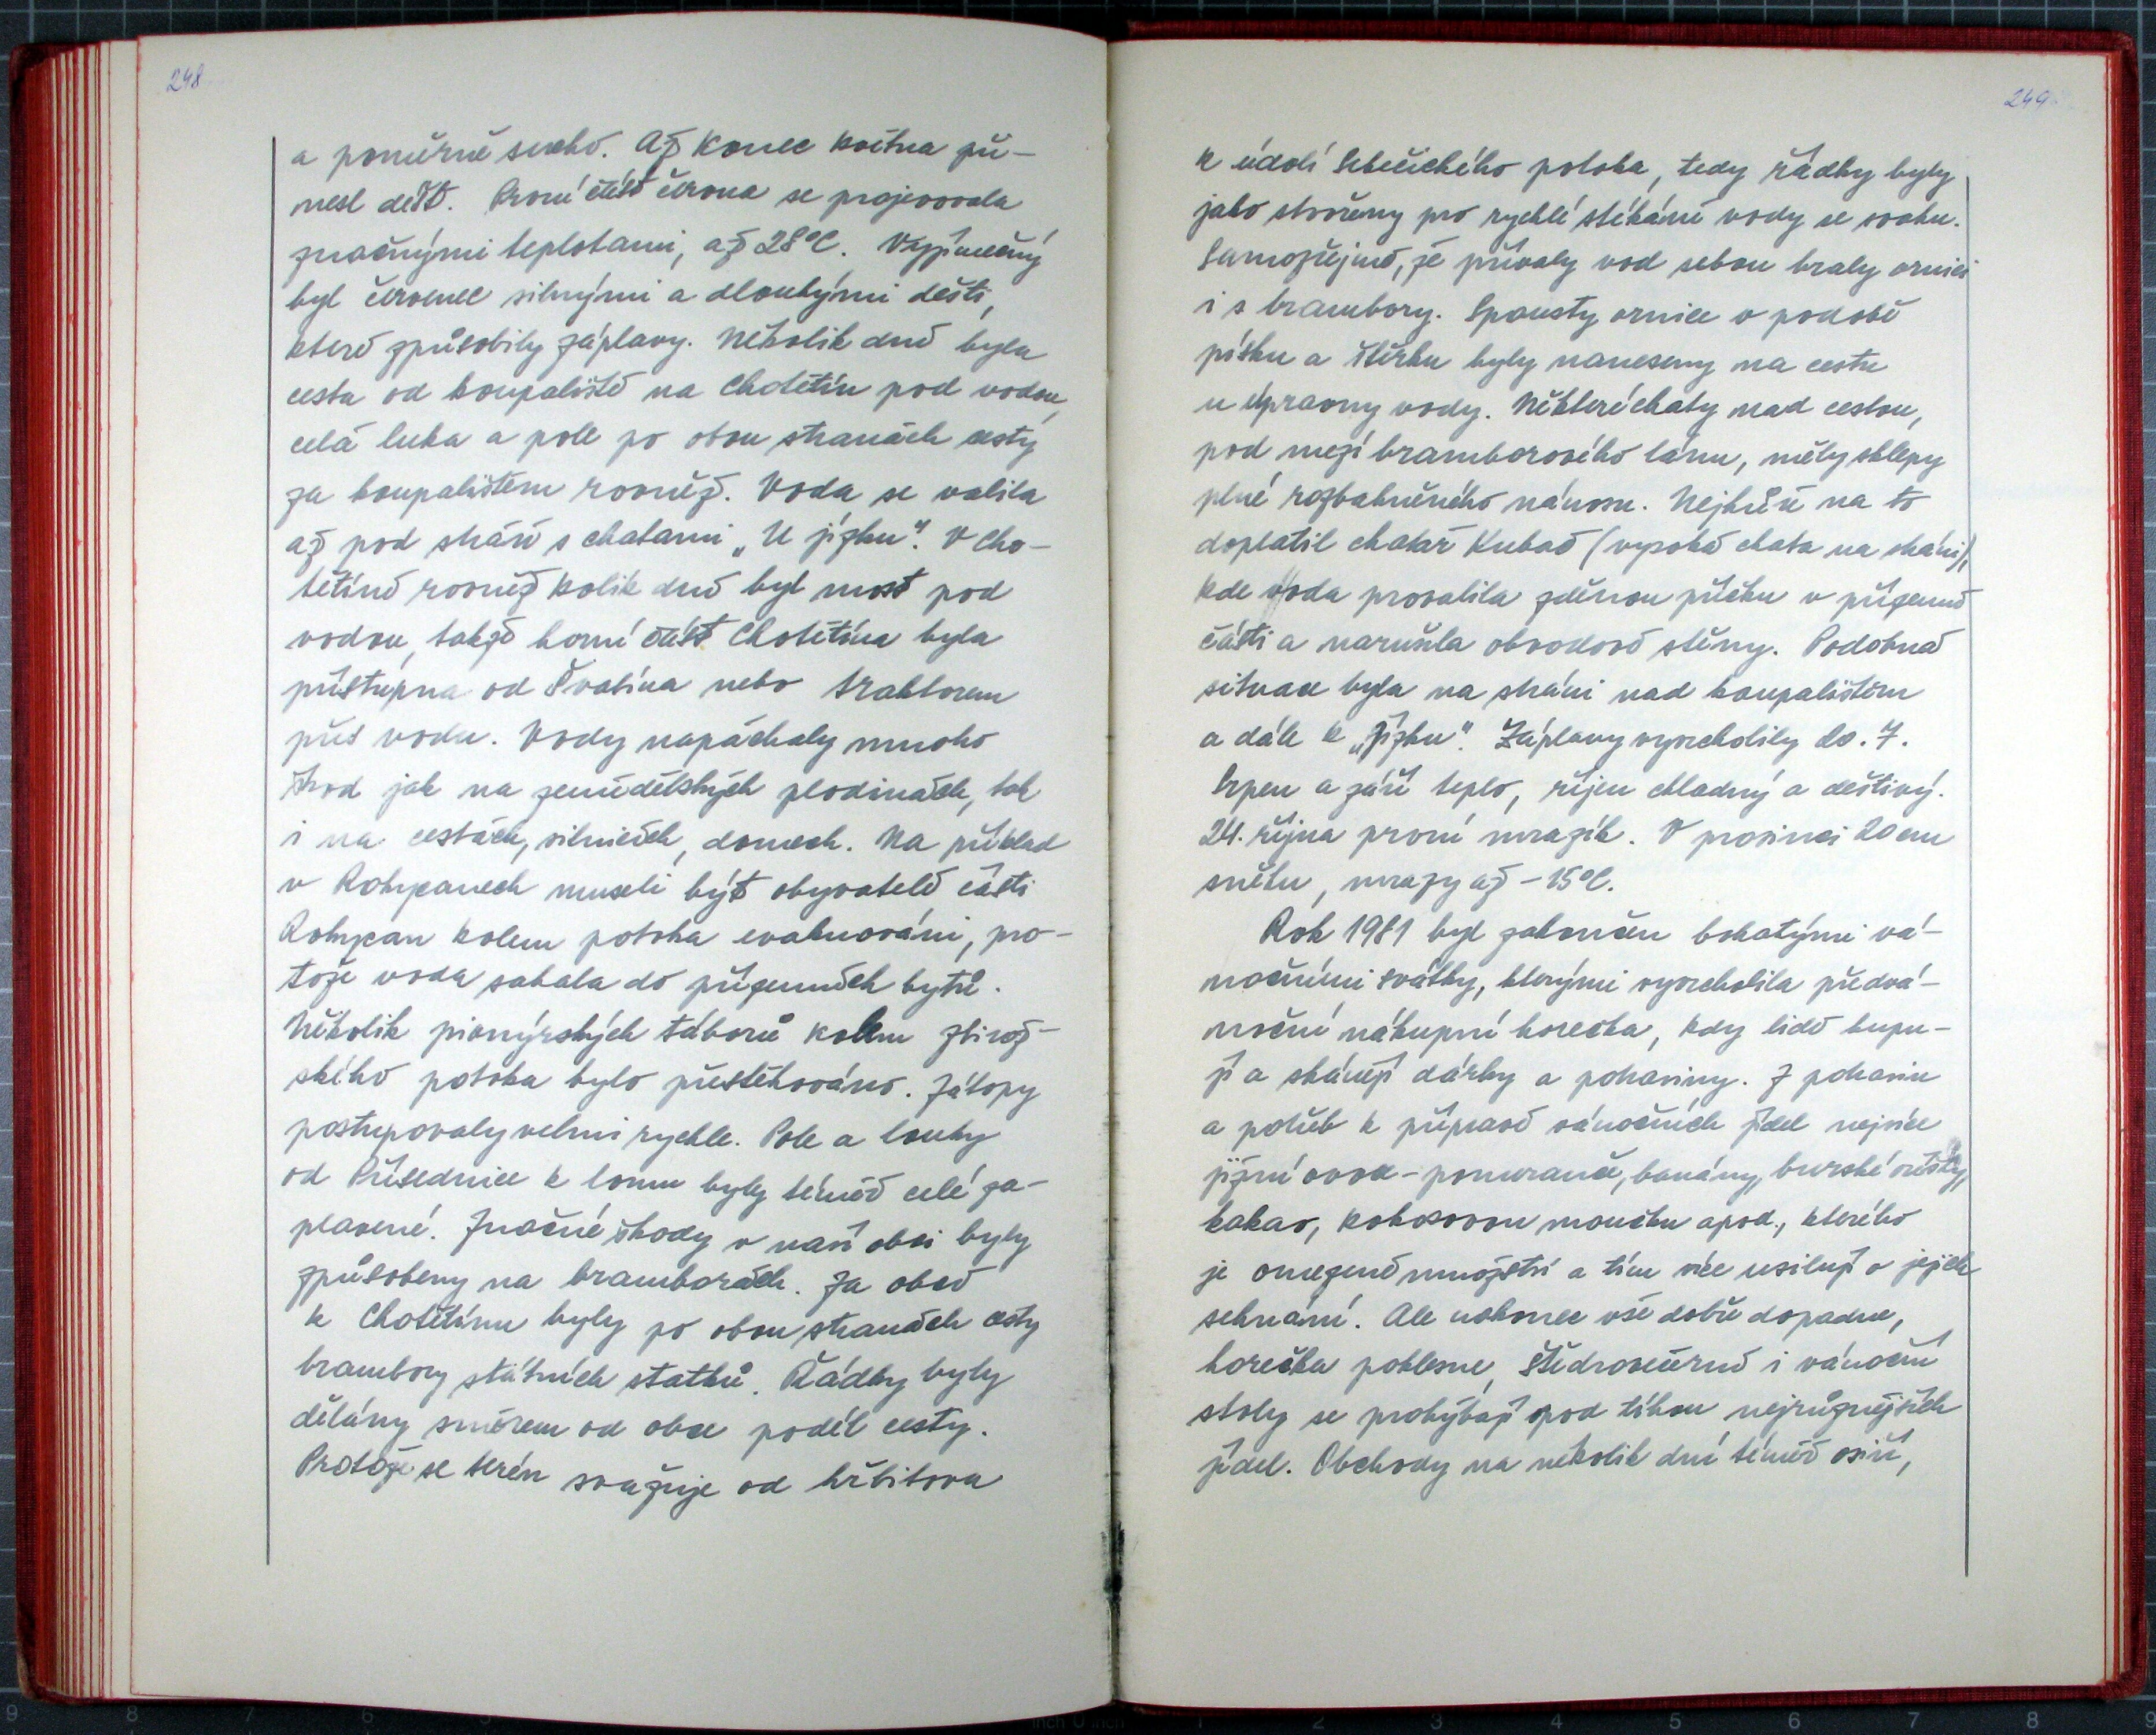 248
a poměrně sucho. Až konec května při-
nesl déšť. První část června se projevovala
značnými teplotami, až 28°C. Výjimečný
byl červenec silnými a dlouhými dešti,
které způsobily záplavy. Několik dnů byla
cesta od koupaliště na Chotětín pod vodou,
celá luka a pole po obou stranách cesty
za koupalištěm rovněž. Voda se valila
až pod stráň s chatami „U jízku". V Cho-
tětíně rovněž kolik dnů byl most pod
vodou, takže horní část Chotětína byla
přístupna od Švabína nebo traktorem
přes vodu. Vody napáchaly mnoho
škod jak na zemědělských plodinách, tak
i na cestách, silnicích, domech. Na příklad
v Rokycanech museli být obyvatelé části
Rokycan kolem potoka evakuováni, pro-
tože voda sahala do přízemních bytů.
Několik pionýrských táborů kolem Zbirož-
ského potoka bylo přestěhováno. Zátopy
postupovaly velmi rychle. Pole a louky
od Přísednice k lomu byly téměř celé za-
plavené. Značné škody v naší obci byly
způsobeny na bramborách. Za obcí
k Chotětínu byly po obou stranách cesty
brambory státních statků. Řádky byly
dělány směrem od obce podél cesty.
Protože se terén svažuje od hřbitova
249
k údolí Sebečického potoka, tedy řádky byly
jako stvořeny pro rychlé stékání vody se svahu.
Samozřejmě, že přívaly vod sebou braly ornici
i s brambory. Spousty ornice v podobě
písku a štěrku byly naneseny na cestu
u úpravny vody. Některé chaty nad cestou,
pod mezí bramborového lánu, měly sklepy
plné rozbahněného nánosu. Nejhůře na to
doplatil chatař Kubač (vysoká chata na stráni),
kde voda provalila zděnou příčku v přízemní
části a narušila obvodové stěny. Podobná
situace byla na stráni nad koupalištěm
a dále k „Jízku". Záplavy vyvrcholily 20. 7.
Srpen a září teplo, říjen chladný a deštivý.
24. října první mrazík. V prosinci 20 cm
sněhu, mrazy až -15°C.
Rok 1981 byl zakončen bohatými vá-
nočními svátky, kterými vyvrcholila předvá-
noční nákupní horečka, kdy lidé kupu-
jí a shánějí dárky a potraviny. Z potravin
a potřeb k přípravě vánočních jídel nejvíce
jižní ovoce - pomeranče, banány, burské oříšky,
kakao, kokosovou moučku apod., kterého
je omezené množství a tím více usilují o jejich
sehnání. Ale nakonec vše dobře dopadne,
horečka poklesne, štědrovečerně i vánoční
stoly se prohýbají pod tíhou nejrůznějších
jídel. Obchody na několik dní téměř osiří,